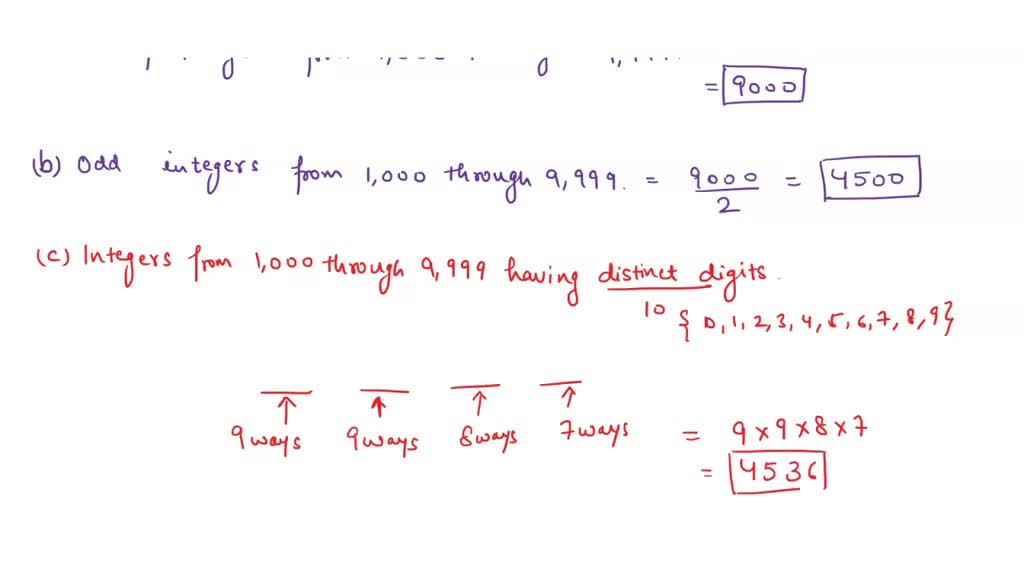 = 9000
(b) Odd integers from 1,000 through 9,999. = 9000/2 = 4500
(c) Integers from 1,000 through 9,999 having distinct digits.
10 {0,1,2,3,4,5,6,7,8,9}
9 ways 9 ways 8 ways 7 ways = 9×9×8×7
= 4536